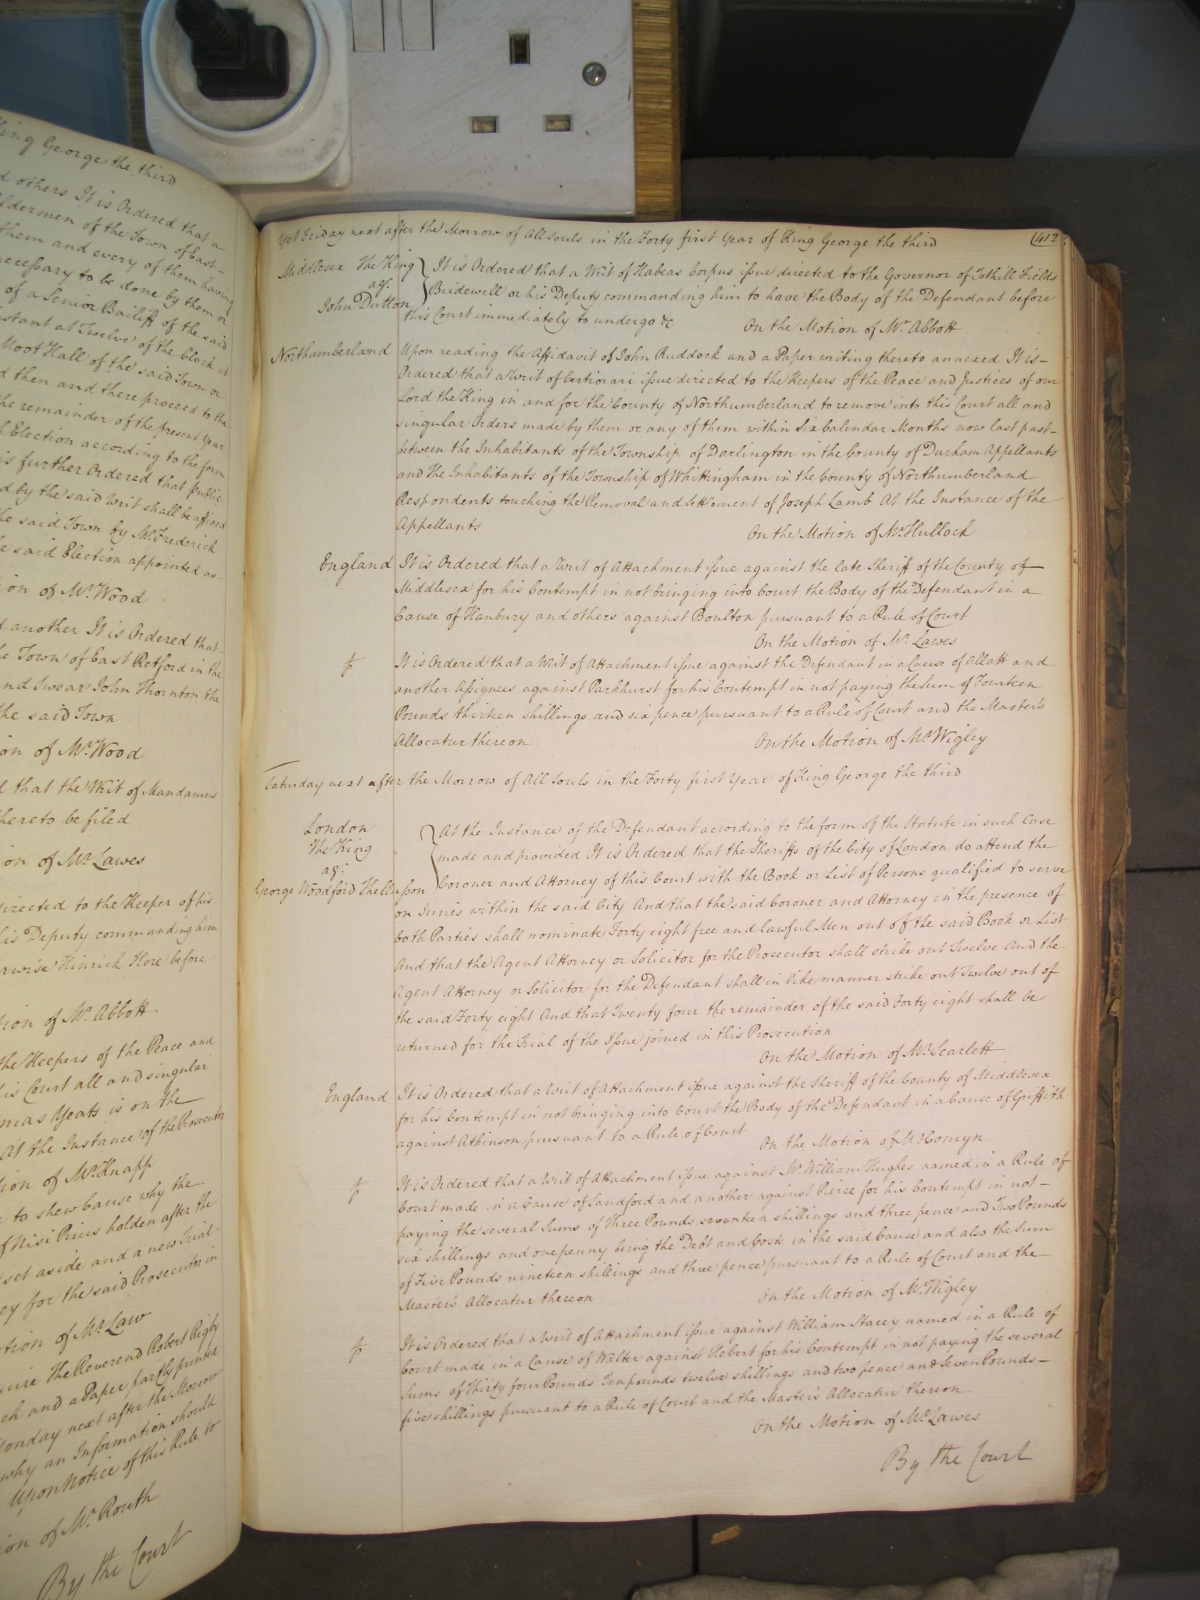 King George the third
d others It is Ordered that a
ldermen of the Town of East-
them and every of them having
necessary to be done by them or
of a Senior Bailiff of the said
nstant at Twelve of the Clock at
Moot Hall of the said Town or
d then and there proceed to the
the remainder of the present Year
h Election according to the form
is further Ordered that public
d by the said Writ shall be affixed
he said Town by Mr Frederick
e said Election appointed as
ion of Mr. Wood
d another It is Ordered that
e Town of East Retford in the
nd Swear John Thornton the
the said Town
on of Mr. Wood
d that the Writ of Mandamus
hereto be filed
ion of Mr. Lawes
directed to the Keeper of his
his Deputy commanding him
erwise Hinrick Hore before
ion of Mr. Abbott
the Keepers of the Peace and
his Court all and singular
mas Yoats is on the
At the Instance of the Prosecutor
ion of Mr. Knapp
to shew Cause why the
f Nisi Prius holden after the
set aside and a new Trial
ey for the said Prosecution in
tion of Mr. Law
The Reverend Robert Rigby
ch and a Paper partly printed
Monday next after the Morrow
why an Information should
Upon Notice of this Rule to
ion of Mr. Routh
By the Court
Yet Friday next after the Morrow of All Souls in the Forty first Year of King George the third
412
Middlesex The King agt. John Dutton
It is Ordered that a Writ of Habeas Corpus issue directed to the Governor of Tothill Fields
Bridewell or his Deputy commanding him to have the Body of the Defendant before
this Court immediately to undergo &c
On the Motion of Mr. Abbott
Northumberland Upon reading the Affidavit of John Ruddock and a Paper writing thereto annexed It is-
Ordered that a Writ of Certiorari issue directed to the Keepers of the Peace and Justices of our
Lord the King in and for the County of Northumberland to remove into this Court all and
singular Orders made by them or any of them within Six Calendar Months now last past-
between the Inhabitants of the Township of Darlington in the County of Durham Appellants
and the Inhabitants of the Township of Whittingham in the County of Northumberland
Respondents touching the Removal and Settlement of Joseph Lamb At the Instance of the
Appellants
On the Motion of Mr. Hullock
England It is Ordered that a Writ of Attachment issue against the late Sheriff of the County of-
Middlesex for his Contempt in not bringing into Court the Body of the Defendant in a
Cause of Hanbury and others against Boulton pursuant to a Rule of Court
On the Motion of Mr. Lawes
It is Ordered that a Writ of Attachment issue against the Defendant in a Cause of Allatt and
another Assignees against Parkhurst for his Contempt in not paying the Sum of Fourteen
Pounds thirteen shillings and six pence pursuant to a Rule of Court and the Master's
Allocatur thereon
On the Motion of Mr. Wigley
Saturday next after the Morrow of All Souls in the Forty first Year of King George the third
London
The King
agt.
George Woodford Thellusson
At the Instance of the Defendant according to the form of the Statute in such Case
made and provided It is Ordered that the Sheriffs of the City of London do attend the
Coroner and Attorney of this Court with the Book or List of Persons qualified to serve
on Juries within the said City And that the said Coroner and Attorney in the presence of
both Parties shall nominate Forty eight free and lawful Men out of the said Book or List
And that the Agent Attorney or Solicitor for the Prosecutor shall strike out Twelve And the
Agent Attorney or Solicitor for the Defendant shall in like manner strike out Twelve out of
the said Forty eight And that Twenty four the remainder of the said Forty eight shall be
returned for the Trial of the Issue joined in this Prosecution
On the Motion of Mr. Scarlett
England It is Ordered that a Writ of Attachment issue against the Sheriff of the County of Middlesex
for his Contempt in not bringing into Court the Body of the Defendant in a Cause of Griffith
against Atkinson pursuant to a Rule of Court
On the Motion of Mr. Comyn
It is Ordered that a Writ of Attachment issue against Mr. William Hughes named in a Rule of
Court made in a Cause of Landford and another against Pierce for his Contempt in not-
paying the several Sums of Three Pounds seventeen shillings and three pence and Two Pounds
six shillings and one penny being the Debt and Costs in the said Cause and also the Sum
of Five Pounds nineteen shillings and three pence pursuant to a Rule of Court and the
Master's Allocatur thereon
On the Motion of Mr. Wigley
It is Ordered that a Writ of Attachment issue against William Stacey named in a Rule of
Court made in a Cause of Walter against Hebert for his Contempt in not paying the several
Sums of Thirty four Pounds Ten pounds twelve shillings and two pence and Seven Pounds-
five shillings pursuant to a Rule of Court and the Master's Allocatur thereon
On the Motion of Mr. Lawes
By the Court